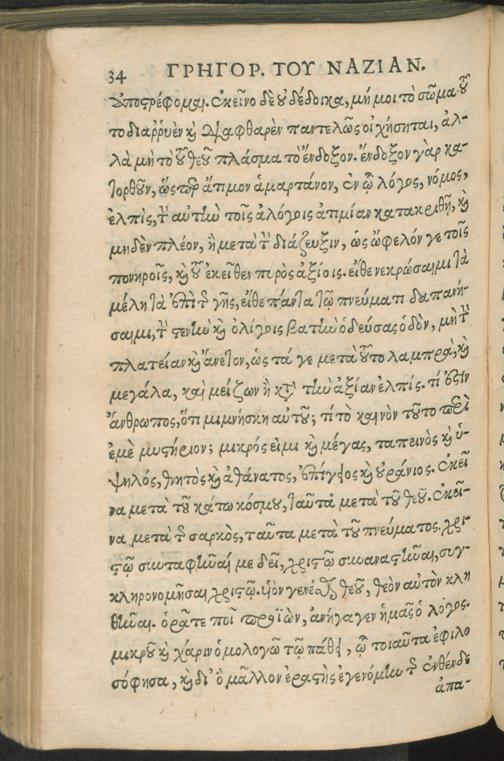 34 ΓΡΗΓΟΡ. ΤΟΥ ΝΑΖΙΑΝ.
ὑποστρέφομαι. ἐκεῖνο δὲ οὐ δέδοικα, μή μοι τὸ σῶμα τοῦτο
τὸ διαρρυὲν καὶ διαφθαρὲν παντελῶς οἰχήσηται, ἀλ-
λὰ μὴ τὸ τοῦ θεοῦ πλάσμα τὸ ἔνδοξον. ἔνδοξον γὰρ κα-
τορθοῦν, ὥσπερ ἄτιμον ἁμαρτάνον, ἐν ᾧ λόγος, νόμος,
ἐλπὶς, τὴν αὐτὴν τοῖς ἀλόγοις ἀτιμίαν κατακριθῇ, καὶ
μηδὲν πλέον, ἢ μετὰ τὴν διάζευξιν, ὡς ὤφελόν γε τοῖς
πονηροῖς, καὶ τοῦ ἐκεῖθεν πυρὸς ἀξίοις. εἴθε νεκρώσαιμι τὰ
μέλη τὰ ἐπὶ τῆς γῆς, εἴθε πάντα τῷ πνεύματι δαπανή-
σαιμι, τὴν στενὴν καὶ ὀλίγοις βατὴν ὁδεύσας ὁδὸν, μὴ τὴν
πλατεῖαν καὶ ἄνετον, ὡς τά γε μετὰ τοῦτο λαμπρὰ, καὶ
μεγάλα, καὶ μείζων ἢ κατὰ τὴν ἀξίαν ἐλπίς. τί ἐστιν
ἄνθρωπος, ὅτι μιμνήσκῃ αὐτοῦ; τί τὸ καινὸν τοῦτο περὶ
ἐμὲ μυστήριον; μικρός εἰμι καὶ μέγας, ταπεινὸς καὶ ὑ-
ψηλός, θνητὸς καὶ ἀθάνατος, ἐπίγειος καὶ οὐράνιος. ἐκεῖ-
να μετὰ τοῦ κάτω κόσμου, ταῦτα μετὰ τοῦ θεοῦ. ἐκεῖ-
να μετὰ τῆς σαρκὸς, ταῦτα μετὰ τοῦ πνεύματος. χρι-
στῷ συνταφῆναί με δεῖ, χριστῷ συναναστῆναι, συγ-
κληρονομῆσαι χριστῷ. υἱὸν γενέσθαι θεοῦ, θεὸν αὐτὸν κλη
θῆναι. ὁρᾶτε ποῖ προϊὼν, ἀνήγαγεν ἡμᾶς ὁ λόγος.
μικροῦ καὶ χάριν ὁμολογῶ τῷ πάθει, ᾧ τοιαῦτα ἐφιλο
σόφησα, καὶ δι' ὃ μᾶλλον ἐραστὴς ἐγενόμην τῆς ἐνθένδε
ἀπα-